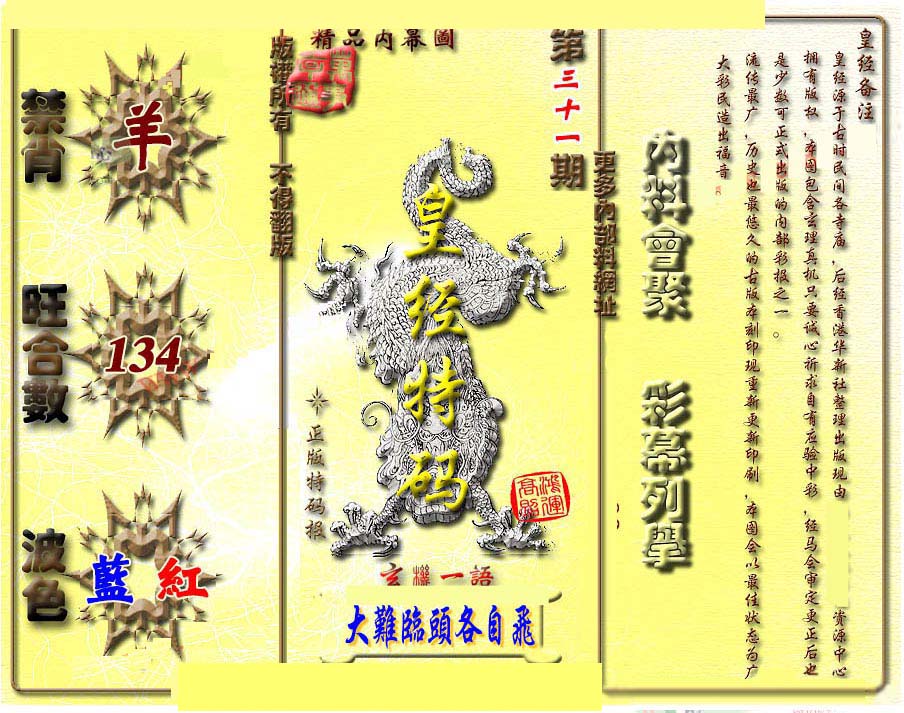 精品內幕圖
禁肖
羊
旺合數
134
波色
藍 紅
版權所有 不得翻版
第三十一期
皇经特码
正版特码报
鴻運高照
玄機一語
大難臨頭各自飛
更多內部料網址
內料會聚
彩幕列舉
皇经备注
皇经源于古时民间各寺庙，后经香港华新社整理出版现由 资源中心
拥有版权，本图包含玄理真机只要诚心祈求自有应验中彩，经马会审定更正后也
是少数可正式出版的内部彩报之一。
流传最广，历史也最悠久的古版本刻印现重新更新印刷，本图会以最佳状态为广
大彩民造出福音